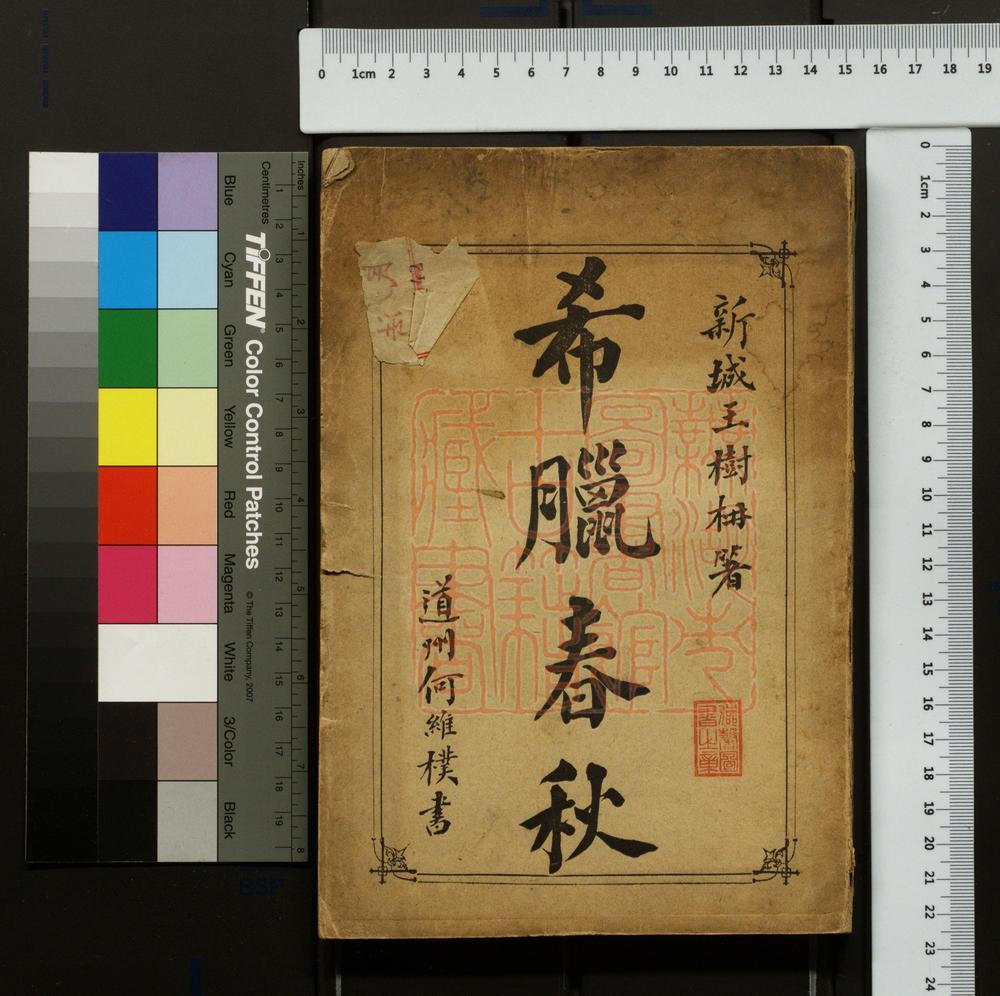 0 1cm 2 3 4 5 6 7 8 9 10 11 12 13 14 15 16 17 18 19
新城王樹枏箸
希臘春秋
道州何維樸書
Inches
1 2 3 4 5 6 7 8
Centimetres
1 2 3 4 5 6 7 8 9 10 11 12 13 14 15 16 17 18 19
TIFFEN® Color Control Patches
© The Tiffen Company, 2007
Blue
Cyan
Green
Yellow
Red
Magenta
White
3/Color
Black
0 1cm 2 3 4 5 6 7 8 9 10 11 12 13 14 15 16 17 18 19 20 21 22 23 24